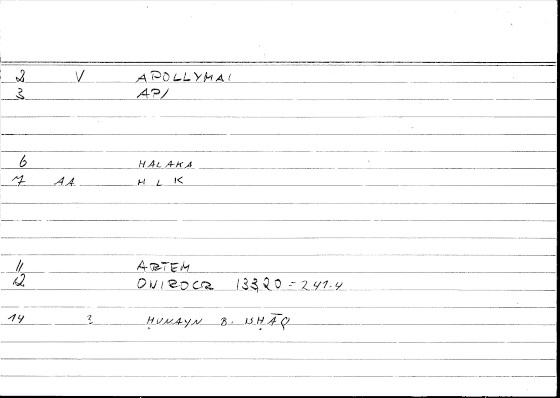 2 V APOLLYMAI
3 API
6 HALAKA
7 AA H L K
11 ARTEM
12 ONIROCR 133,20 = 241.4
14 ? ḤUNAYN B. ISḤĀQ